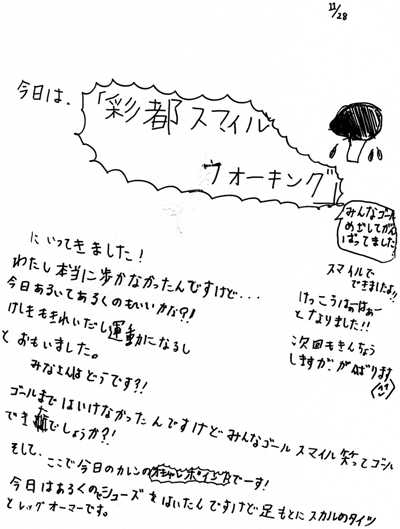 11/28
今日は、
「彩都スマイル
ウォーキング」
みんなゴール
めがしてがん
ばってました!
にいってきました!
わたし本当に歩かなかったんですけど...
今日あるいてあるくのもいいかな?!
けしきもきれいだし運動になるし
とおもいました。
みなさんはどうです?!
スマイルで
できましたよ!!
けっこうはぁはぁー
となりました!!
次回もきんちょう
しますが、がんばります
ゴールまではいけなかったんですけどみんなゴールスマイル笑ってゴール
できたでしょうか?!
そして、ここで今日のカレンのオシャレポイントでーす!
今日はあるくのでシューズをはいたんですけど足もとにスカルのタイツ
とレッグオーマーです。